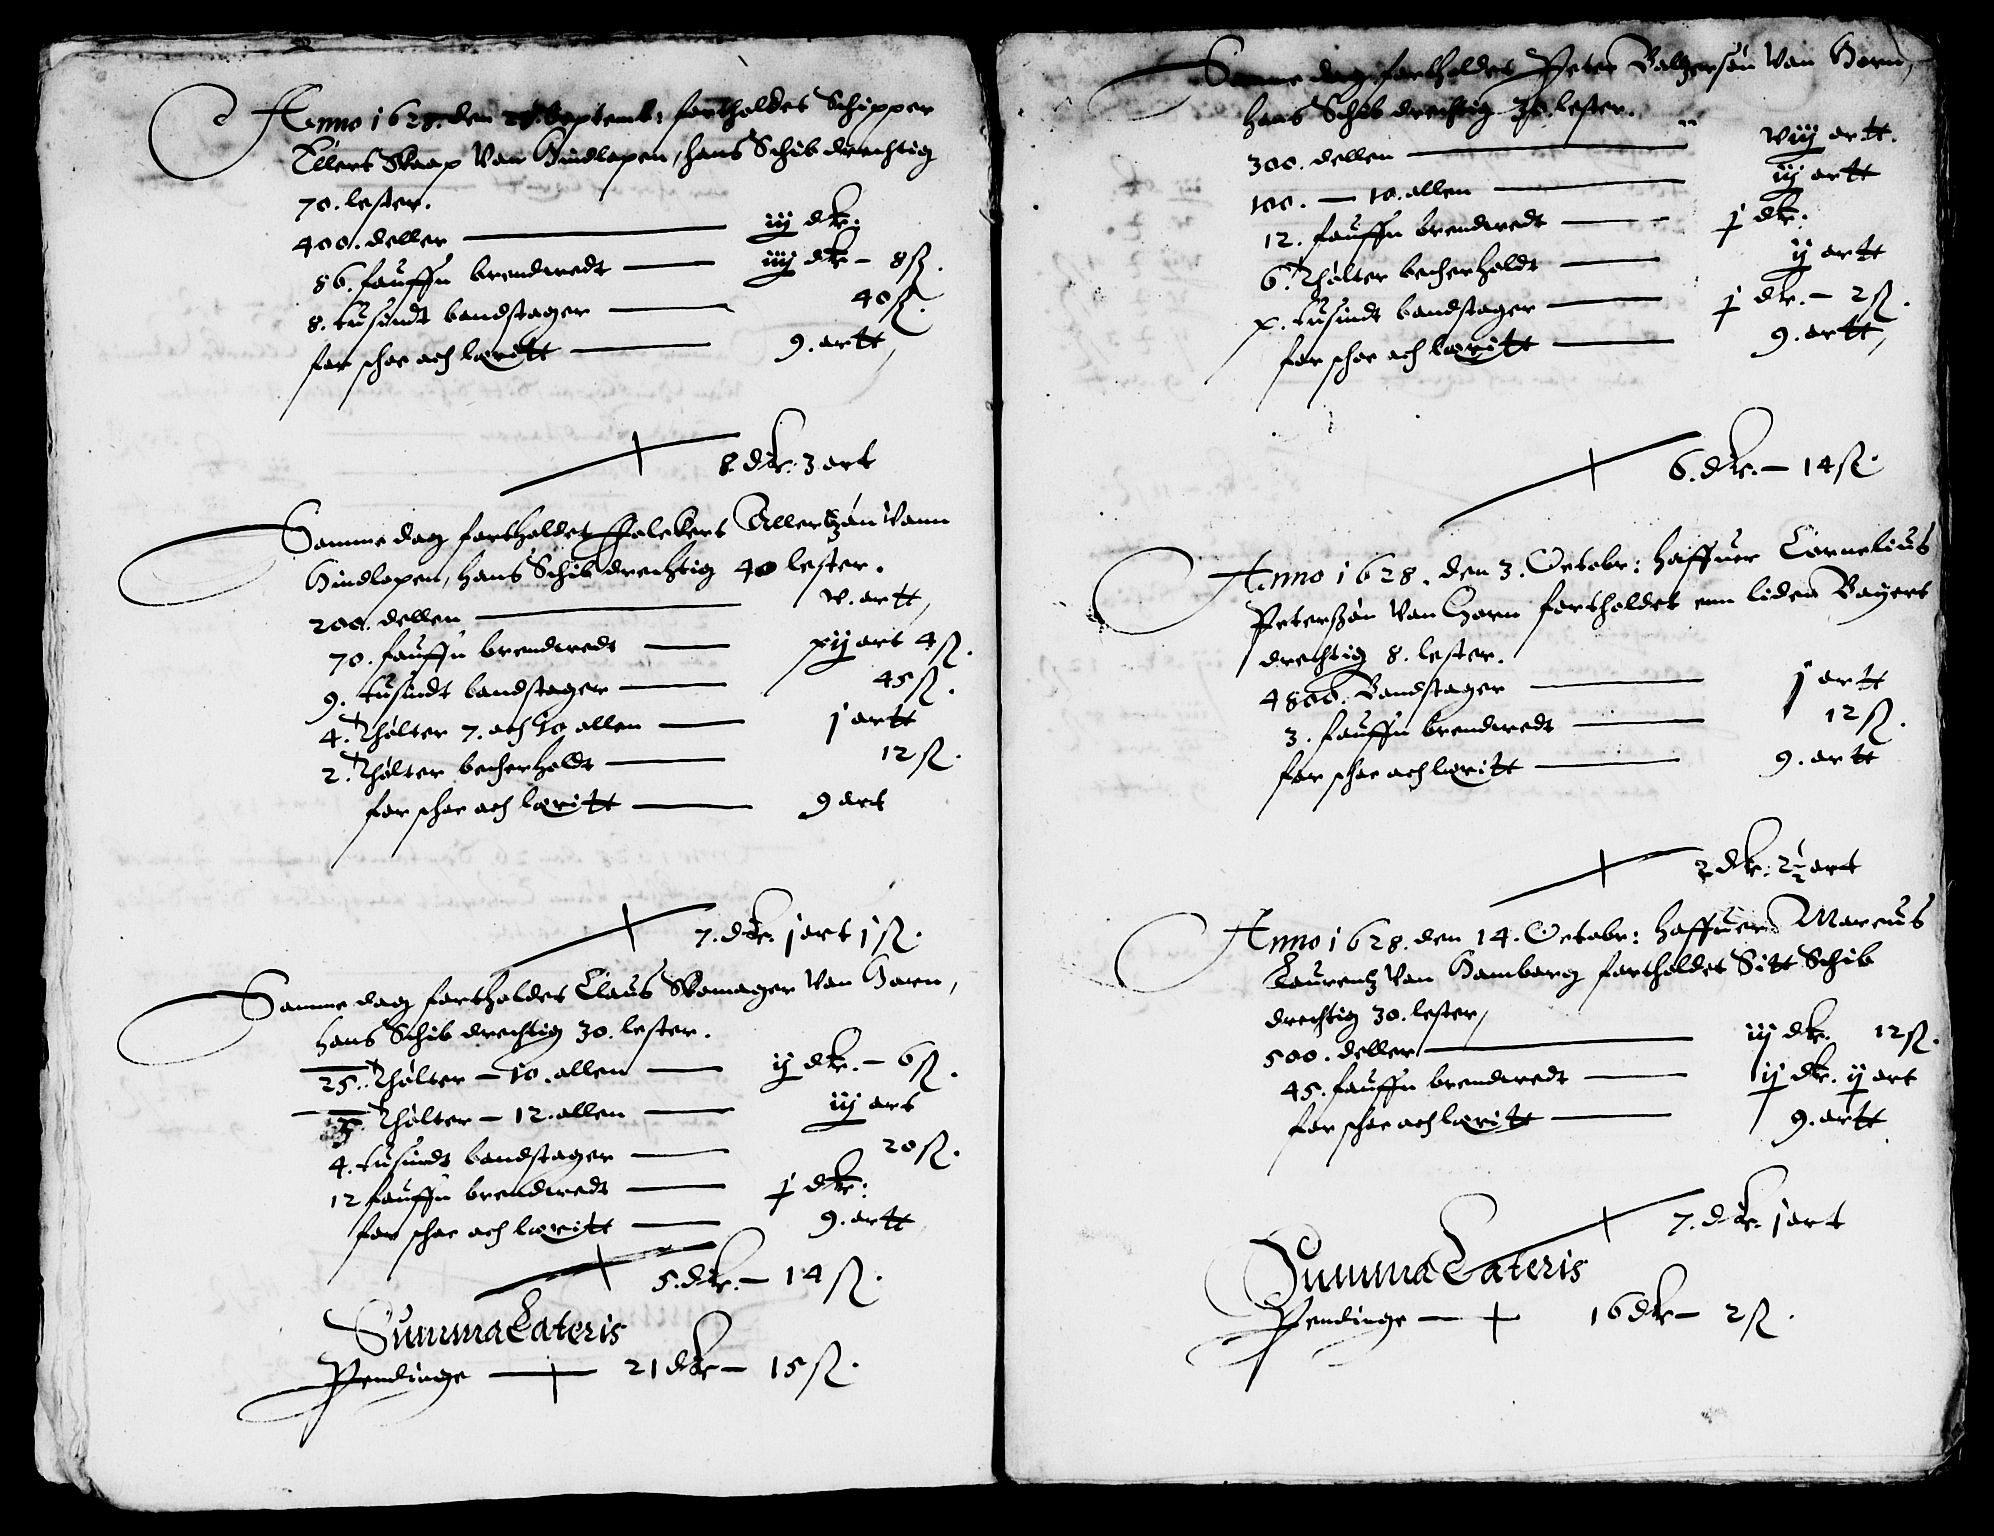 Anno 1628. den 28. Septemb: fortholdet Schipper
Ellert Skaap Van Hindlopen, hans Schib drechtig
70. lester.
400. deller — iij dlr:
86. fauffn brendwedt — iiij dlr — 8 ß.
8. tusindt bandstager — 40 ß.
for schoe och læritt — 9. ortt
8. dlr: 3 ort
Samme dag fortholdet Folckert Allertzøn Vann
Hindlopen, hans Schib drechtig 40 lester.
200. dellen — v. ortt
70. fauffn brendwedt — xiij ort 4 ß.
9. tusindt bandstager — 45 ß.
4. Thølter 7. och 10 allen — j ortt
2. Thølter becherholdt — 12 ß.
for schoe och læritt — 9 ort
7. dlr. j ort j ß.
Samme dag fortholdet Claus Skomager Van Horn,
hans Schib drechtig 30. lester.
25. Thølter — 10. allen — ij dlr. — 6 ß.
5. Thølter — 12. allen — iij ort
4. tusindt bandstager — 20 ß.
12 fauffn brendwedt — j dlr:
for schoe och læritt — 9. ortt
5. dlr. — 14 ß.
Summa Lateris
Pendinge — 21 dlr — 15 ß.
Samme dag fortholdet Peter Baltzersøn Van Horn,
hans Schib drechtig 30. lester.
300. dellen — viij ortt.
100. — 10. allen — iij ortt
12. fauffn brendwedt — j dlr.
6. Thølter becherholdt — ij ortt
x. tusindt bandstager — j dlr. — 2 ß.
for schoe och læritt — 9. ortt,
6. dlr. — 14 ß.
Anno 1628. den 3. Octobr: haffuer Cornelius
Peterßøn Van Horn fortholdet enn liden Boyert
drechtig 8. lester.
4800. Bandstager — j ortt
3. fauffn brendwedt — 12 ß.
for schoe och læritt — 9. ortt
2 dlr: 2½ ort
Anno 1628. den 14. Octobr: haffuer Marcus
Laurentz Van Hamborg fortholdet Sitt Schib
drechtig 30. lester,
500. deller — iij dlr. 12 ß.
45. fauffn brendwedt — ij dlr. ij ort
for schoe och læritt — 9. ortt
7. dlr. j ort
Summa Lateris
Pendinge — 16 dlr — 2 ß.